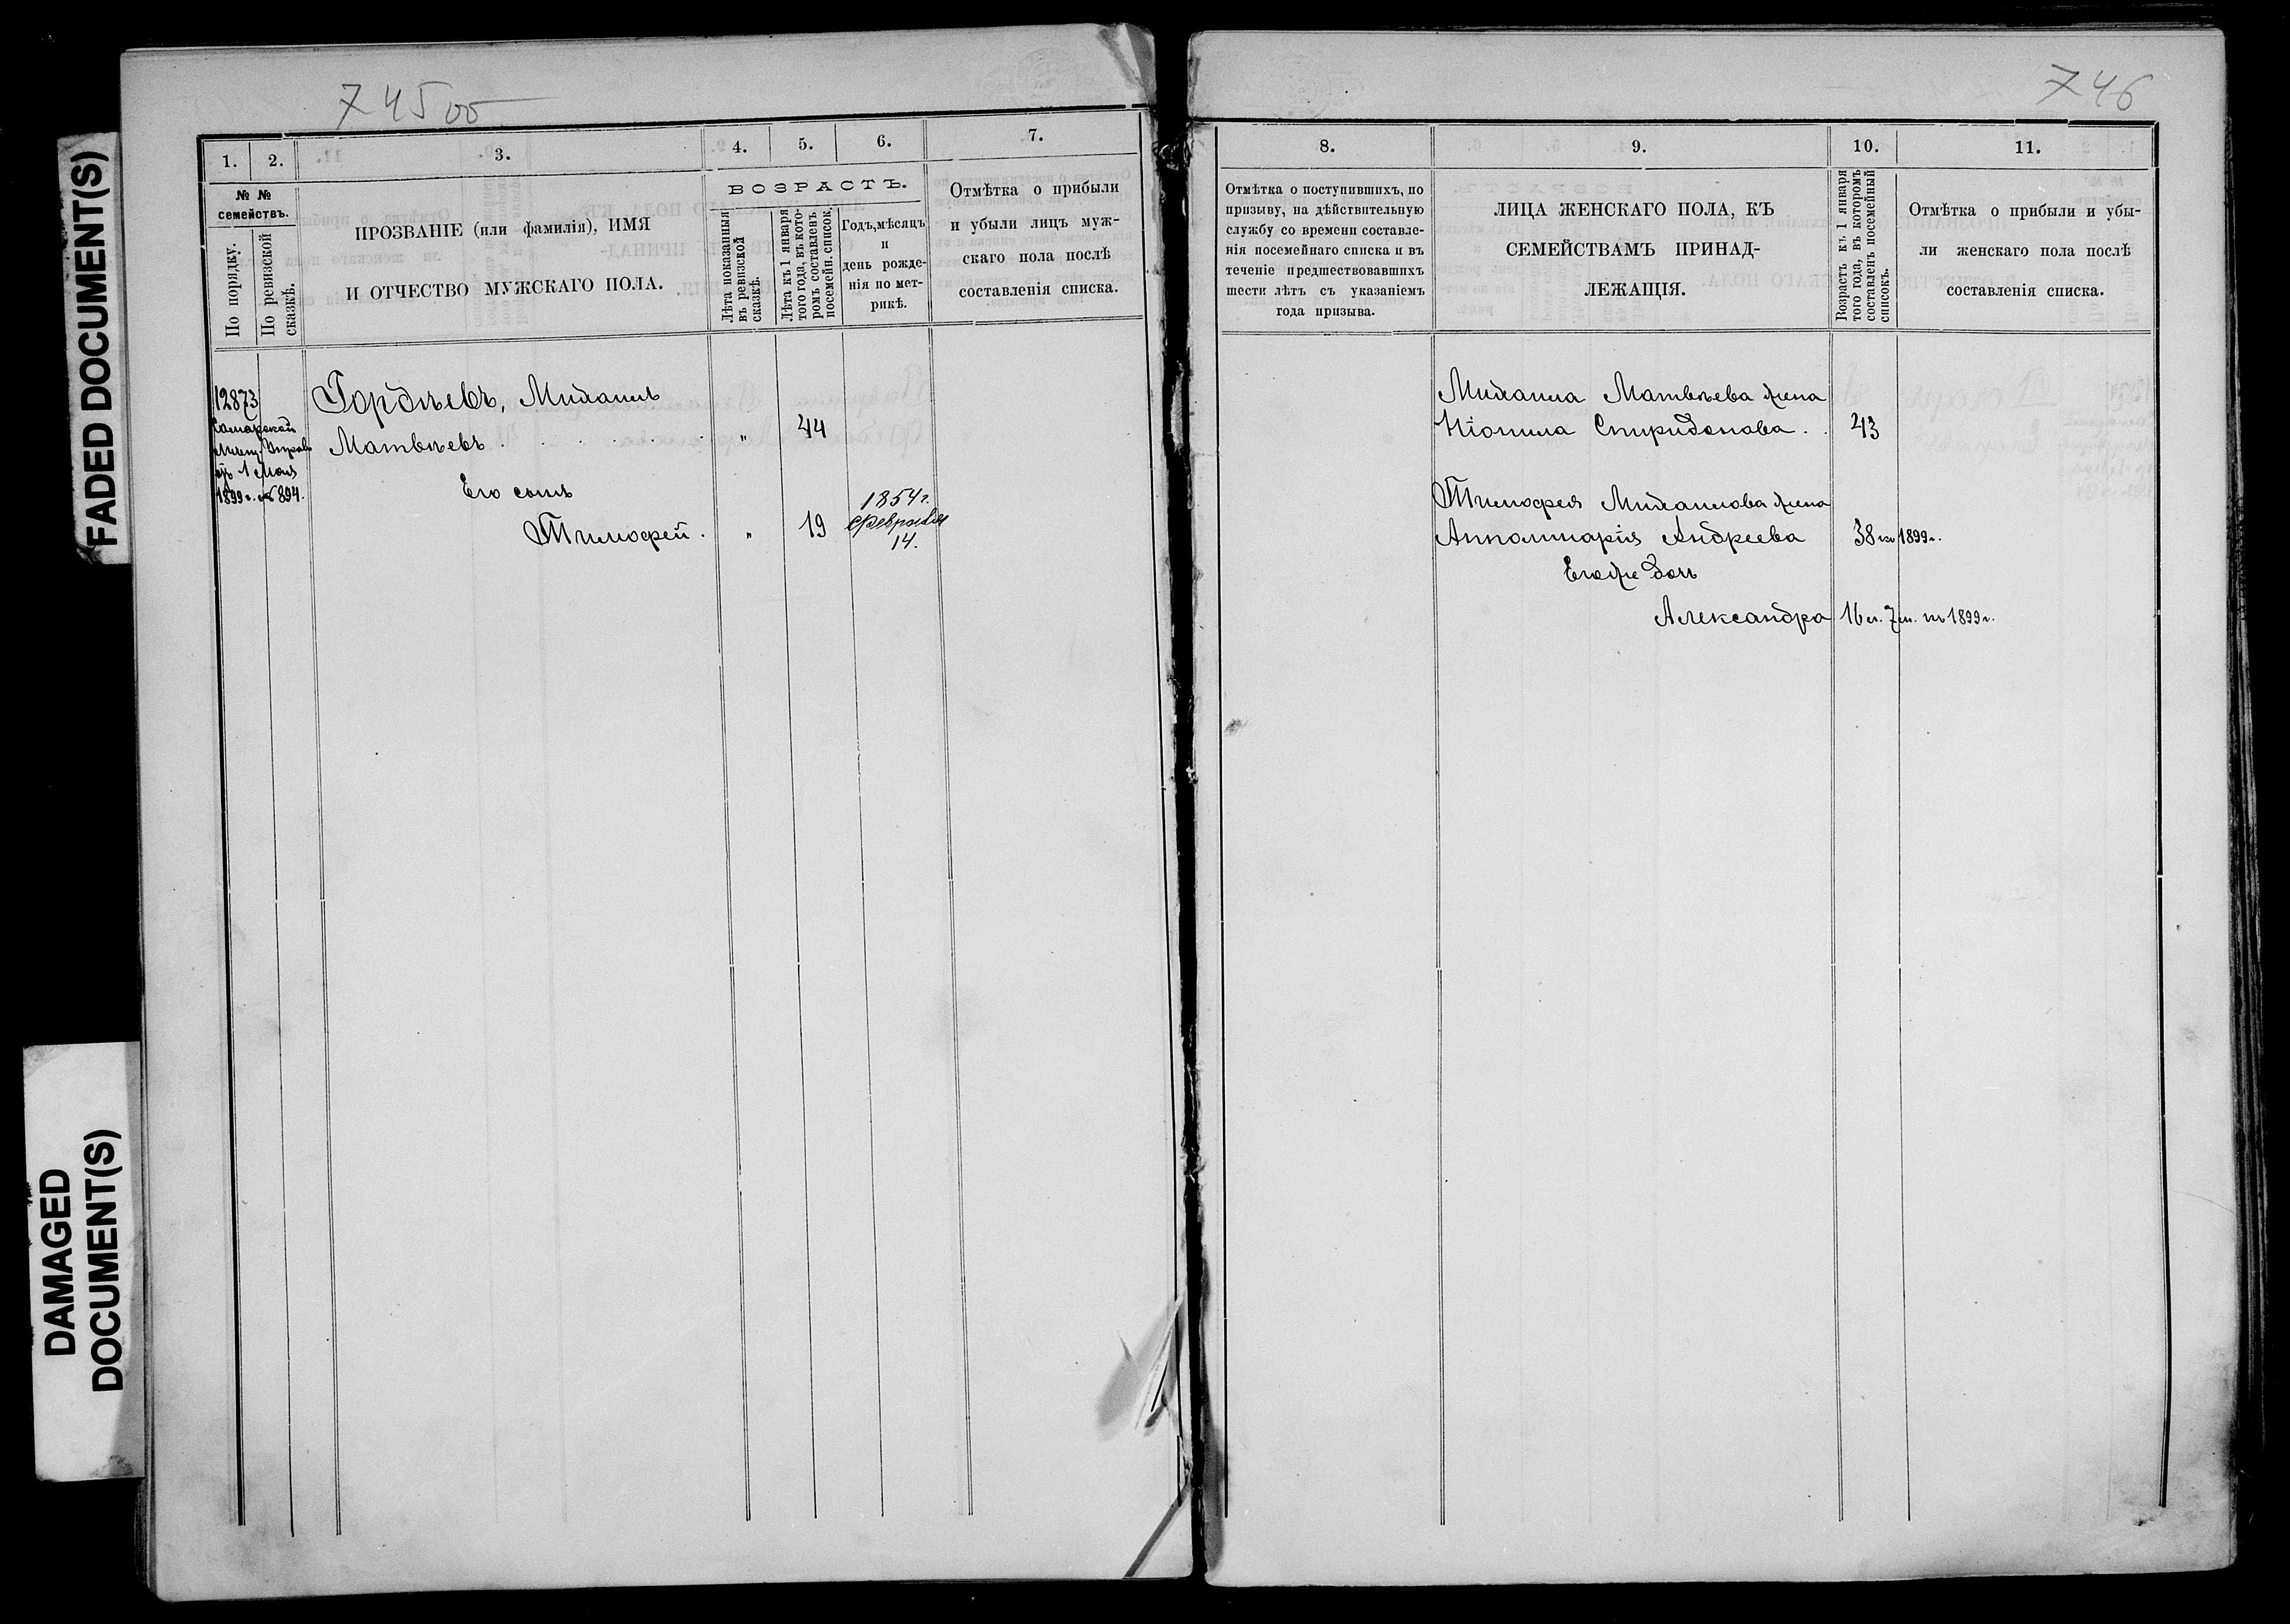 FADED DOCUMENT(S)
DAMAGED
DOCUMENT(S)
745 об
1. 2. 3. 4. 5. 6. 7.
№ №
семействъ.
По порядку.
По ревизской
сказкѣ.
ПРОЗВАНІЕ (или фамилія), ИМЯ
И ОТЧЕСТВО МУЖСКАГО ПОЛА.
ВОЗРАСТЪ.
Лѣта показанныя
въ ревизской
сказкѣ.
Лѣта къ 1 января
того года, въ кото-
ромъ составленъ
посемейн. список.
Годъ, мѣсяцъ
и
день рожде-
нія по мет-
рикѣ.
Отмѣтка о прибыли
и убыли лицъ муж-
скаго пола послѣ
составленія списка.
12873
Самарской
Мѣщ. Управ.
отъ 1 Мая
1899 г. № 894.
Гордѣевъ, Михаилъ
Матвѣевъ . . . . . . . „ 44
Его сынъ
Тимофей . „ 19
1854 г.
Февраля
14.
746
8. 9. 10. 11.
Отмѣтка о поступившихъ, по
призыву, на дѣйствительную
службу со времени составле-
нія посемейнаго списка и въ
теченіе предшествовавшихъ
шести лѣтъ съ указаніемъ
года призыва.
ЛИЦА ЖЕНСКАГО ПОЛА, КЪ
СЕМЕЙСТВАМЪ ПРИНАД-
ЛЕЖАЩІЯ.
Возрастъ къ 1 января
того года, въ которомъ
составленъ посемейный
списокъ.
Отмѣтка о прибыли и убы-
ли женскаго пола послѣ
составленія списка.
Михаила Матвѣева жена
Ніонила Спиридонова . . 43
Тимофея Михаилова жена
Апполинарія Андреева 38 къ 1899 г.
Егоже дочь
Александра 16 л. 7 м. къ 1899 г.